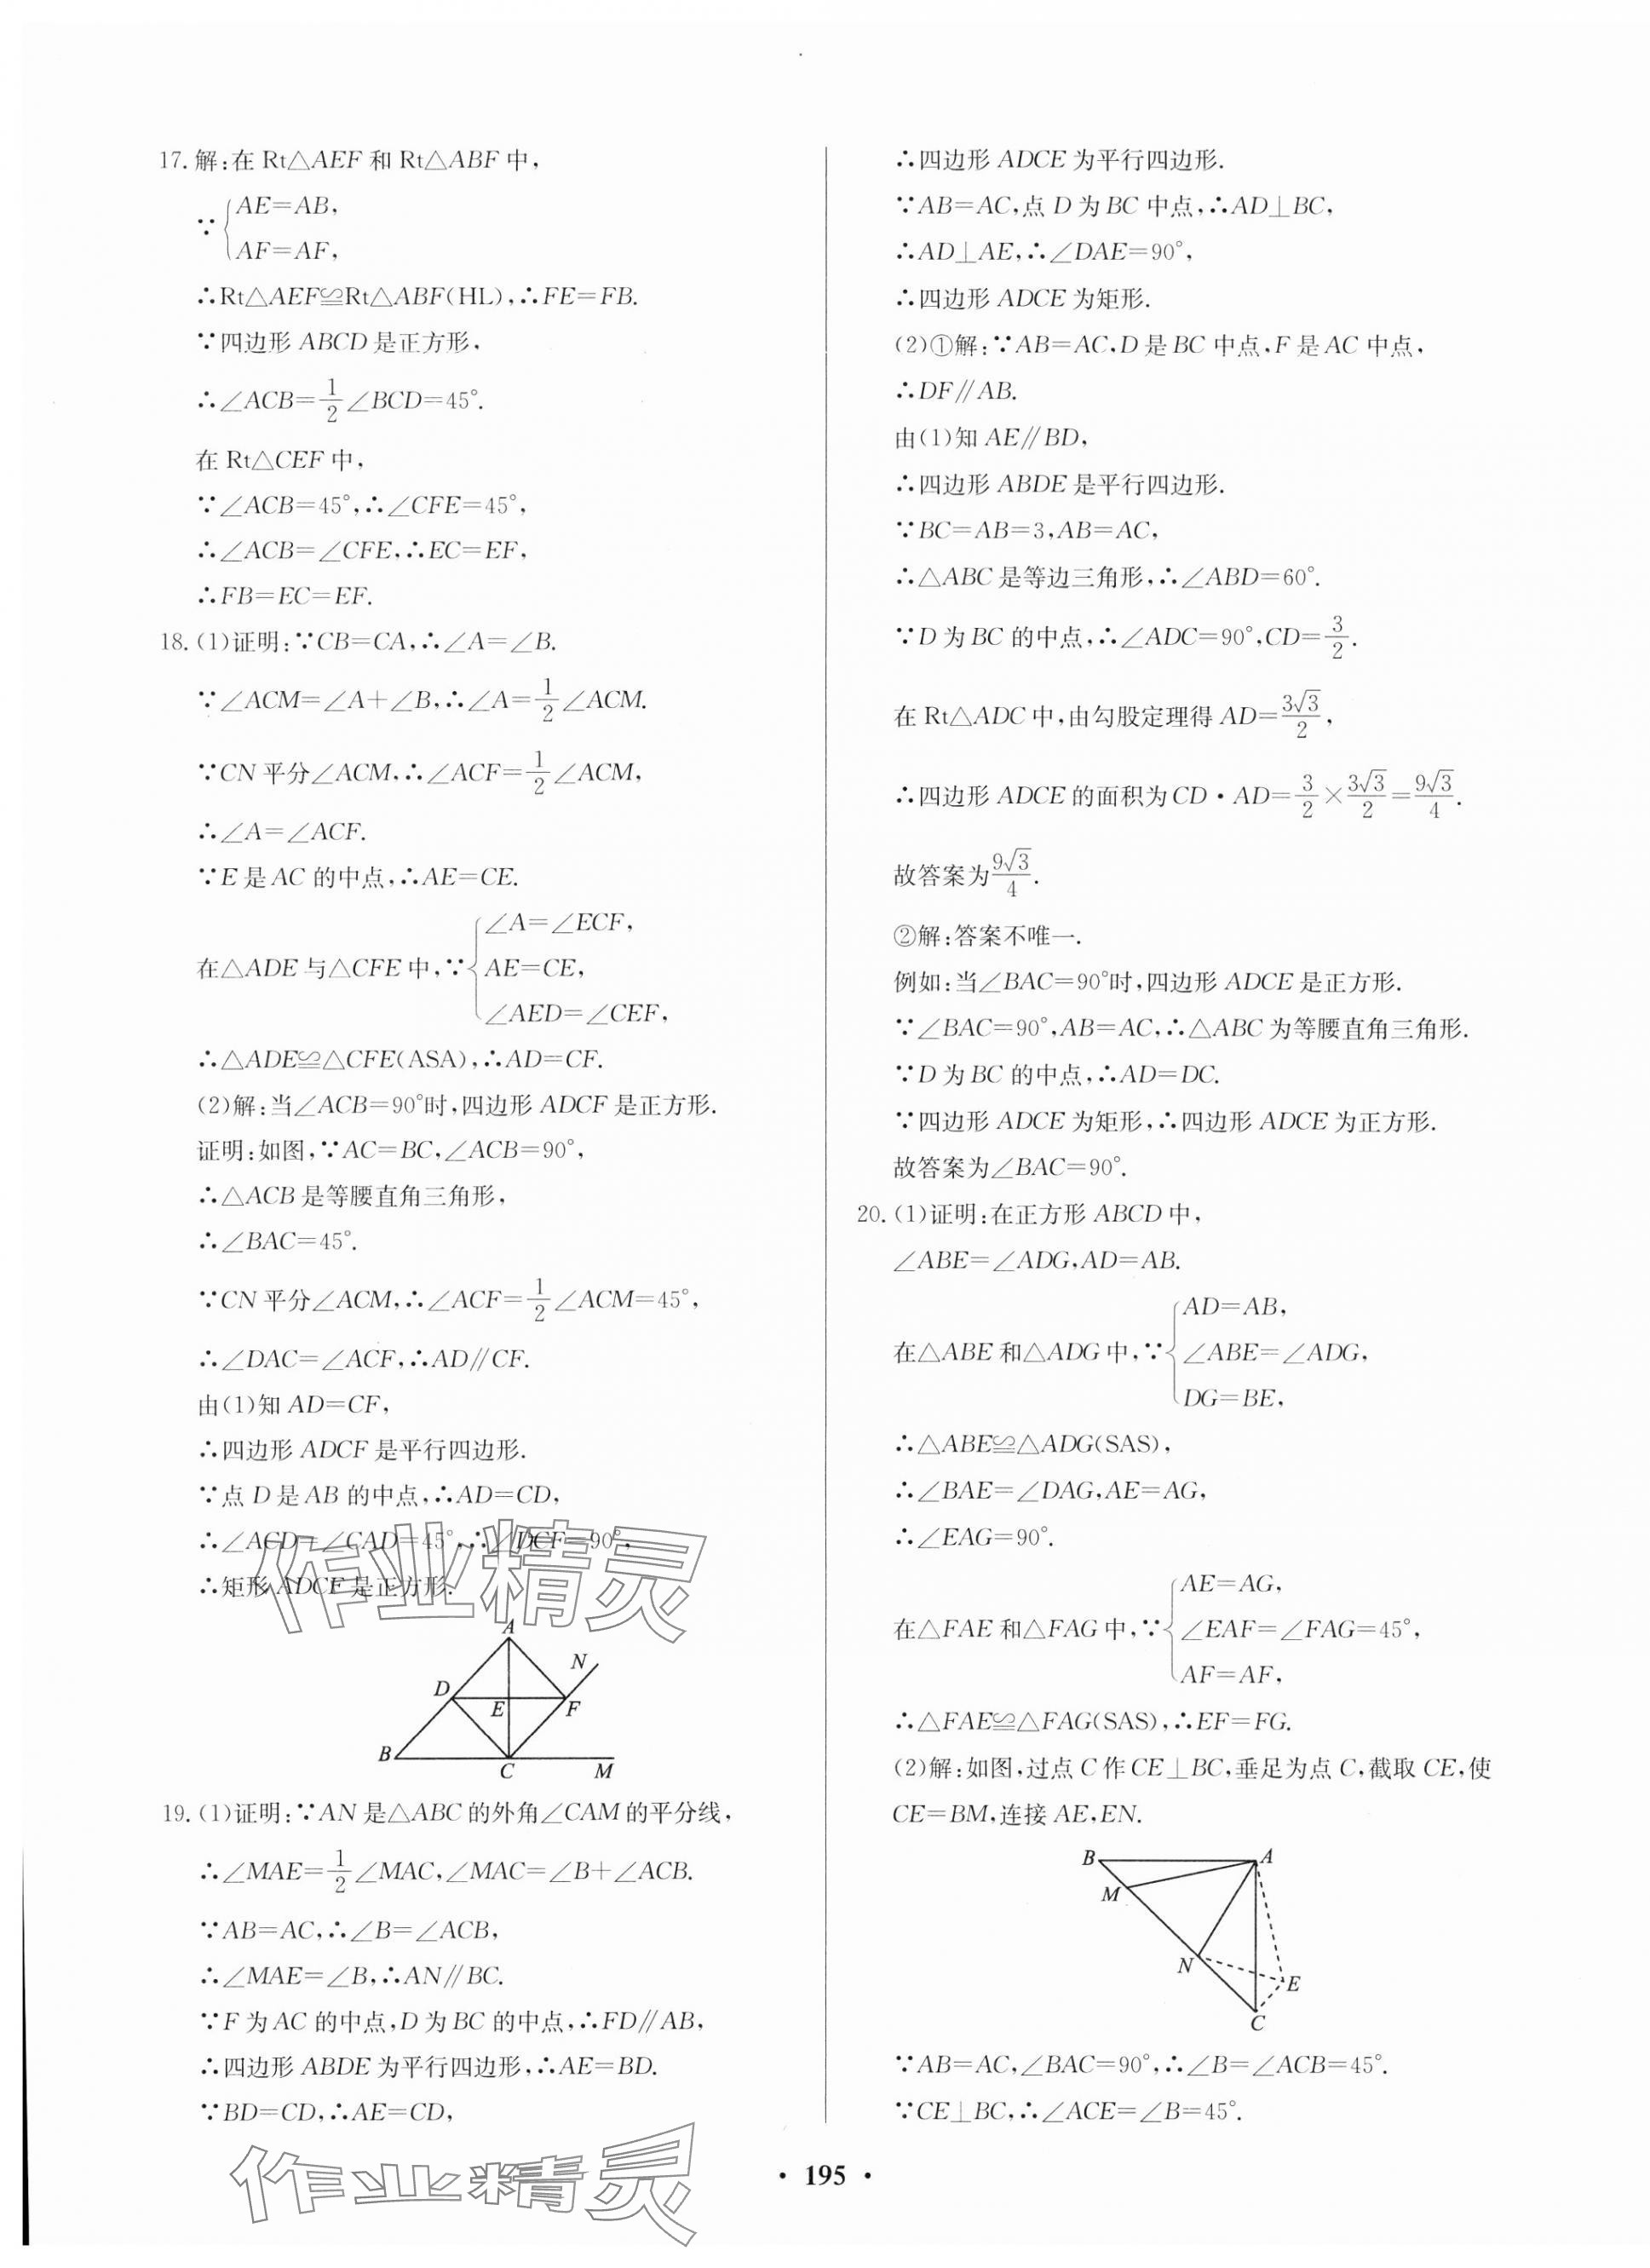 17. 解:在 Rt△AEF 和 Rt△ABF 中,
∵{AE=AB,
AF=AF,
∴Rt△AEF≌Rt△ABF(HL),∴FE=FB.
∵四边形 ABCD 是正方形,
∴∠ACB=1/2∠BCD=45°.
在 Rt△CEF 中,
∵∠ACB=45°,∴∠CFE=45°,
∴∠ACB=∠CFE,∴EC=EF,
∴FB=EC=EF.
18. (1)证明:∵CB=CA,∴∠A=∠B.
∵∠ACM=∠A+∠B,∴∠A=1/2∠ACM.
∵CN 平分∠ACM,∴∠ACF=1/2∠ACM,
∴∠A=∠ACF.
∵E 是 AC 的中点,∴AE=CE.
在△ADE 与△CFE 中,∵{∠A=∠ECF,
AE=CE,
∠AED=∠CEF,
∴△ADE≌△CFE(ASA),∴AD=CF.
(2)解:当∠ACB=90°时,四边形 ADCF 是正方形.
证明:如图,∵AC=BC,∠ACB=90°,
∴△ACB 是等腰直角三角形,
∴∠BAC=45°.
∵CN 平分∠ACM,∴∠ACF=1/2∠ACM=45°,
∴∠DAC=∠ACF,∴AD∥CF.
由(1)知 AD=CF,
∴四边形 ADCF 是平行四边形.
∵点 D 是 AB 的中点,∴AD=CD,
∴∠ACD=∠CAD=45°,∴∠DCF=90°,
∴矩形 ADCF 是正方形.
作业精灵
A
N
D
E
F
B
C
M
19. (1)证明:∵AN 是△ABC 的外角∠CAM 的平分线,
∴∠MAE=1/2∠MAC,∠MAC=∠B+∠ACB.
∵AB=AC,∴∠B=∠ACB,
∴∠MAE=∠B,∴AN∥BC.
∵F 为 AC 的中点,D 为 BC 的中点,∴FD∥AB,
∴四边形 ABDE 为平行四边形,∴AE=BD.
∵BD=CD,∴AE=CD,
∴四边形 ADCE 为平行四边形.
∵AB=AC,点 D 为 BC 中点,∴AD⊥BC,
∴AD⊥AE,∴∠DAE=90°,
∴四边形 ADCE 为矩形.
(2)①解:∵AB=AC,D 是 BC 中点,F 是 AC 中点,
∴DF∥AB.
由(1)知 AE∥BD,
∴四边形 ABDE 是平行四边形.
∵BC=AB=3,AB=AC,
∴△ABC 是等边三角形,∴∠ABD=60°.
∵D 为 BC 的中点,∴∠ADC=90°,CD=3/2.
在 Rt△ADC 中,由勾股定理得 AD=3√3/2,
∴四边形 ADCE 的面积为 CD·AD=3/2×3√3/2=9√3/4.
故答案为9√3/4.
②解:答案不唯一.
例如:当∠BAC=90°时,四边形 ADCE 是正方形.
∵∠BAC=90°,AB=AC,∴△ABC 为等腰直角三角形.
∵D 为 BC 的中点,∴AD=DC.
∵四边形 ADCE 为矩形,∴四边形 ADCE 为正方形.
故答案为∠BAC=90°.
20. (1)证明:在正方形 ABCD 中,
∠ABE=∠ADG,AD=AB.
在△ABE 和△ADG 中,∵{AD=AB,
∠ABE=∠ADG,
DG=BE,
∴△ABE≌△ADG(SAS),
∴∠BAE=∠DAG,AE=AG,
∴∠EAG=90°.
在△FAE 和△FAG 中,∵{AE=AG,
∠EAF=∠FAG=45°,
AF=AF,
∴△FAE≌△FAG(SAS),∴EF=FG.
(2)解:如图,过点 C 作 CE⊥BC,垂足为点 C,截取 CE,使
CE=BM,连接 AE,EN.
B
A
M
N
E
C
∵AB=AC,∠BAC=90°,∴∠B=∠ACB=45°.
∵CE⊥BC,∴∠ACE=∠B=45°.
作业精灵
· 195 ·